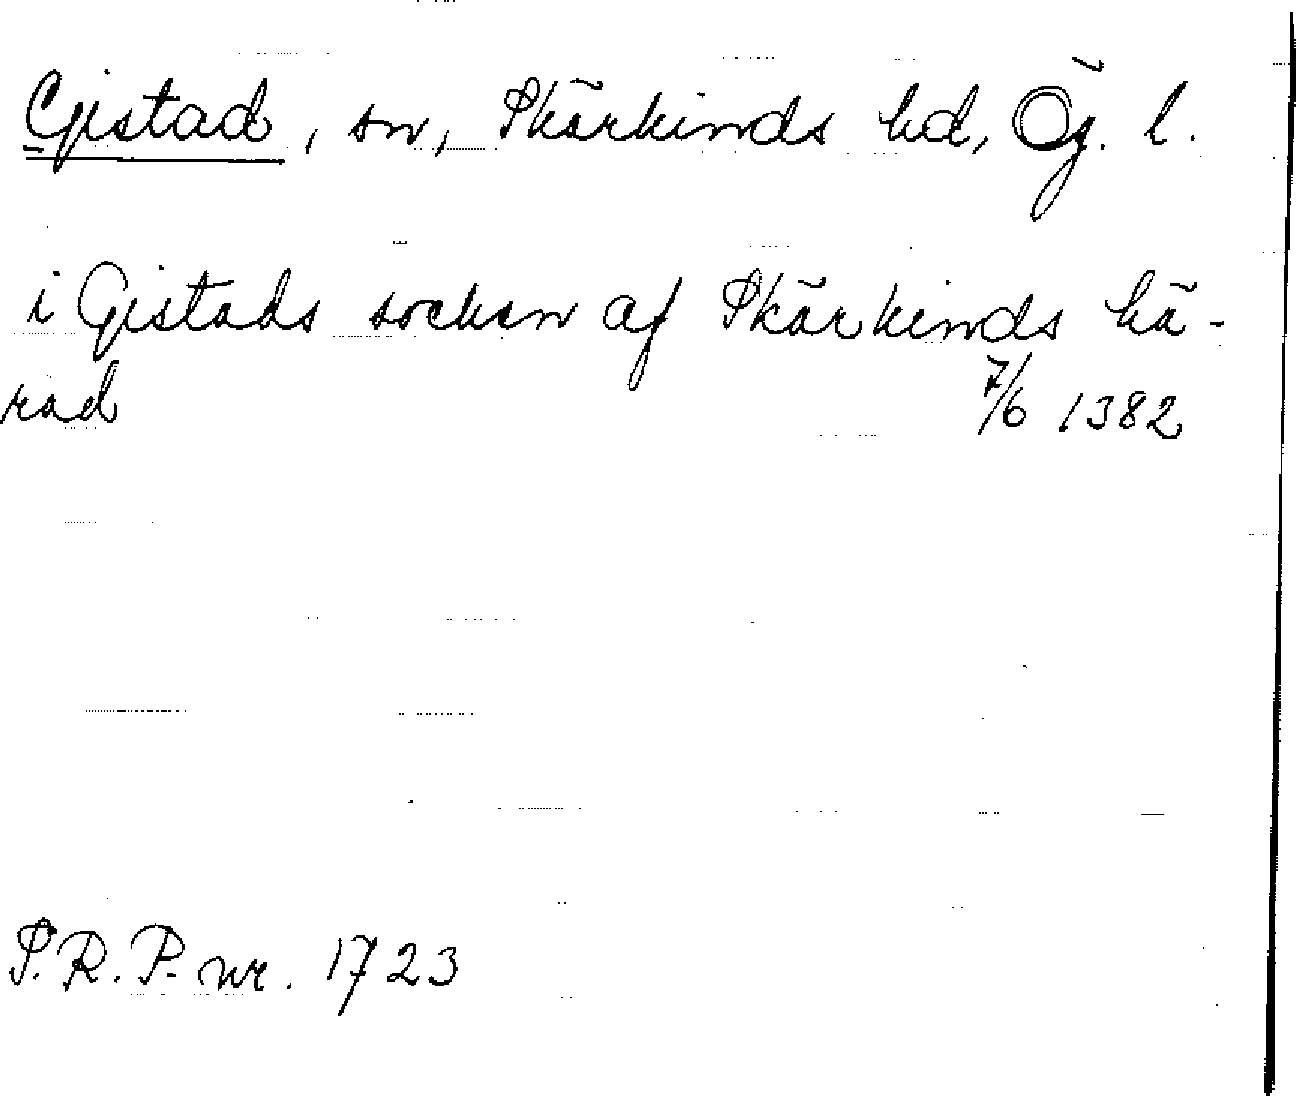 Gistad, sn, Skärkinds hd, Ög. l.
i Gistads socken af Skärkinds hä-
rad 7/6 1382
S.R.P. nr. 1723